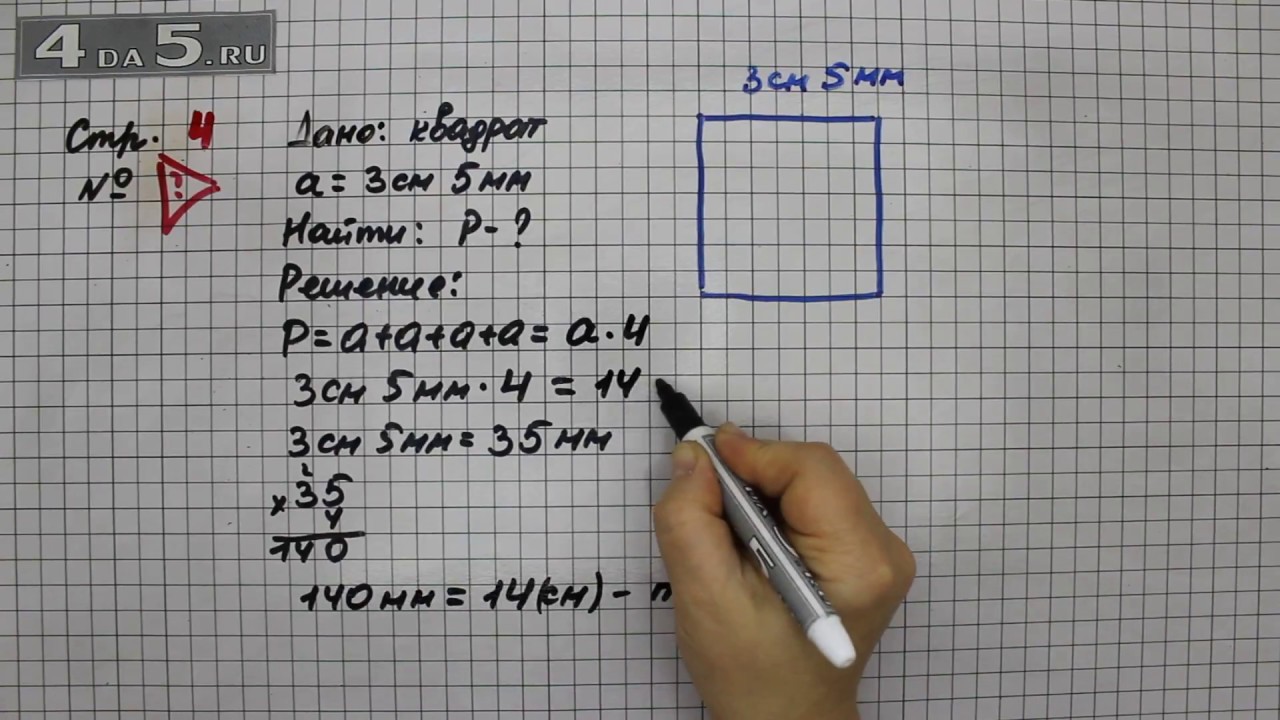 4DA5.RU
Стр. 4
№ ?
Дано: квадрат
a = 3см 5мм
Найти: P-?
Решение:
P=a+a+a+a= a·4
3см 5мм·4 = 14
3см 5мм= 35мм
2
×35
4
140
140мм= 14(см)- п
3см 5мм